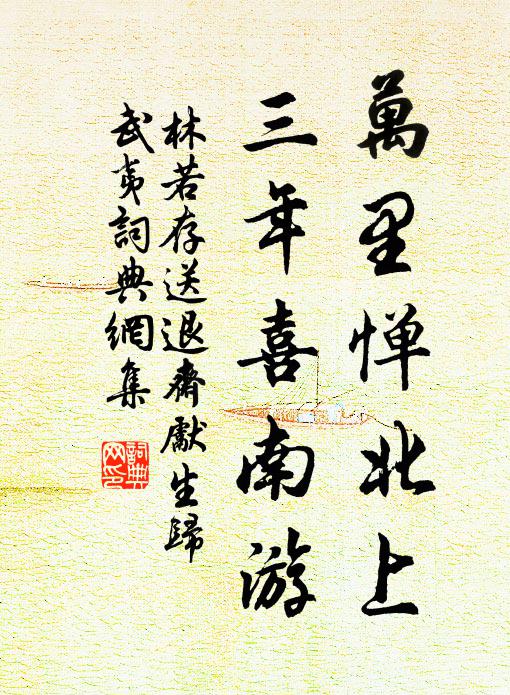 萬里惮北上
三年喜南游
林若存送退齋獻生歸
武夷詞典網集
詞典网印